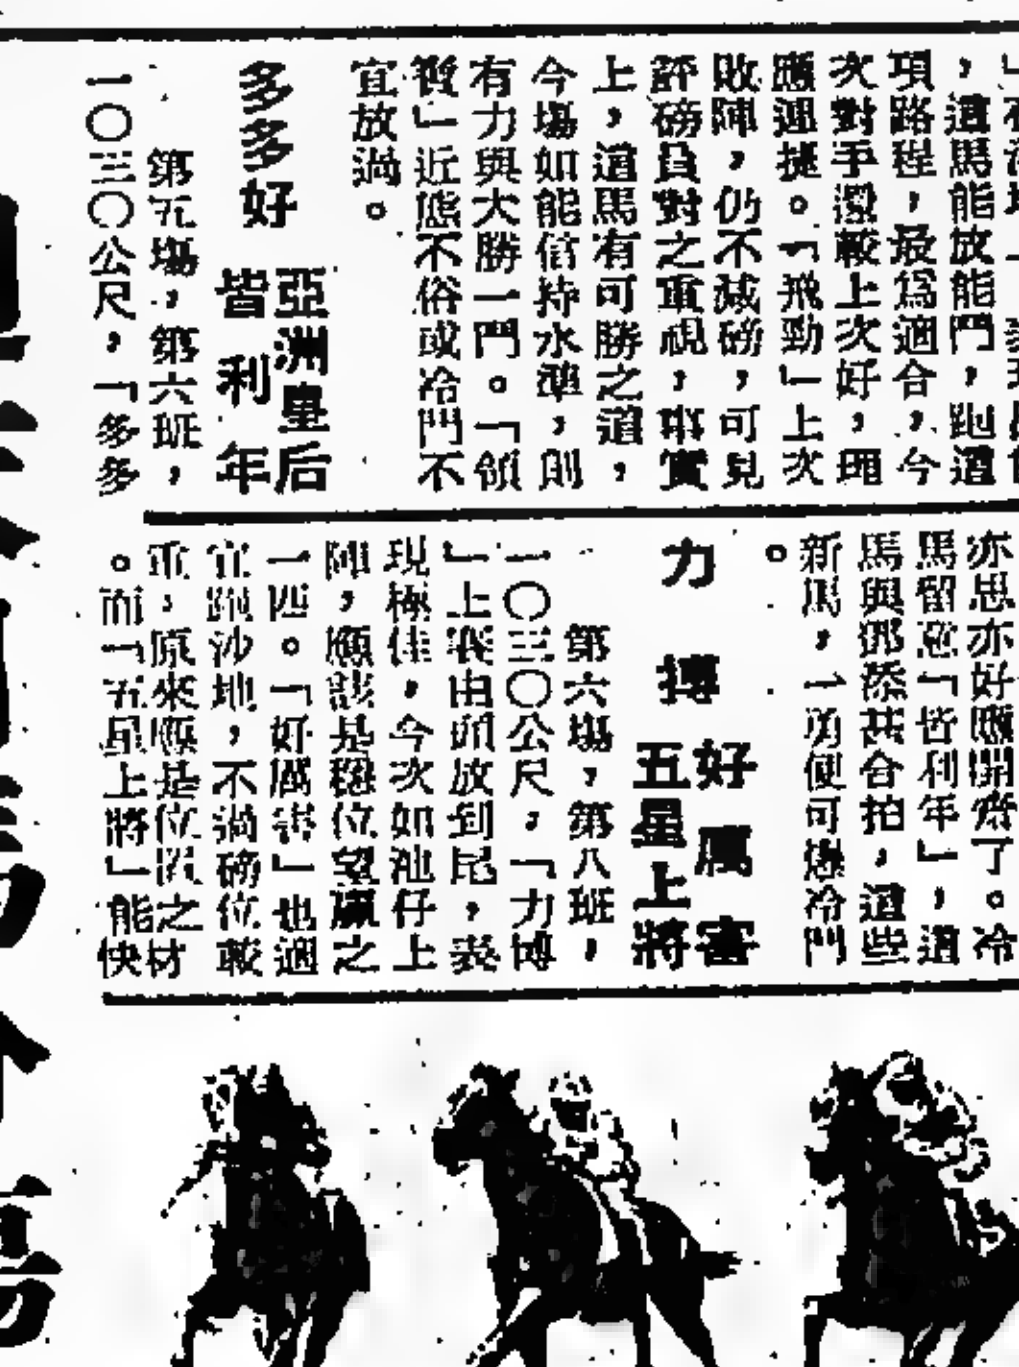 ，這馬能放能鬥，跑這
項路程，最爲適合，今
次對手還較上次好，理
應迎捷。「飛勁」上次
敗陣，仍不減磅，可見
評磅員對之重視，事實
上，這馬有可勝之道，
今塲如能信持水準，則
有力與大勝一鬥。「領
賢」近態不俗或冷門不
宜放過。
多多好
亞洲皇后
皆利年
第五塲，第六班，
一〇三〇公尺，「多多
亦思亦好應開齋了。冷
馬留意「皆利年」，這
馬與鄧添甚合拍，這些
新馬，一勇便可爆冷門
。
力搏
好厲害
五星上將
第六塲，第八班，
一〇三〇公尺，「力博
」上賽由頭放到尾，表
現極佳，今次如池仔上
陣，應該是穩位望贏之
一匹。「好厲害」也適
宜跑沙地，不過磅位較
重，原來應是位置之材
。而「五星上將」能快